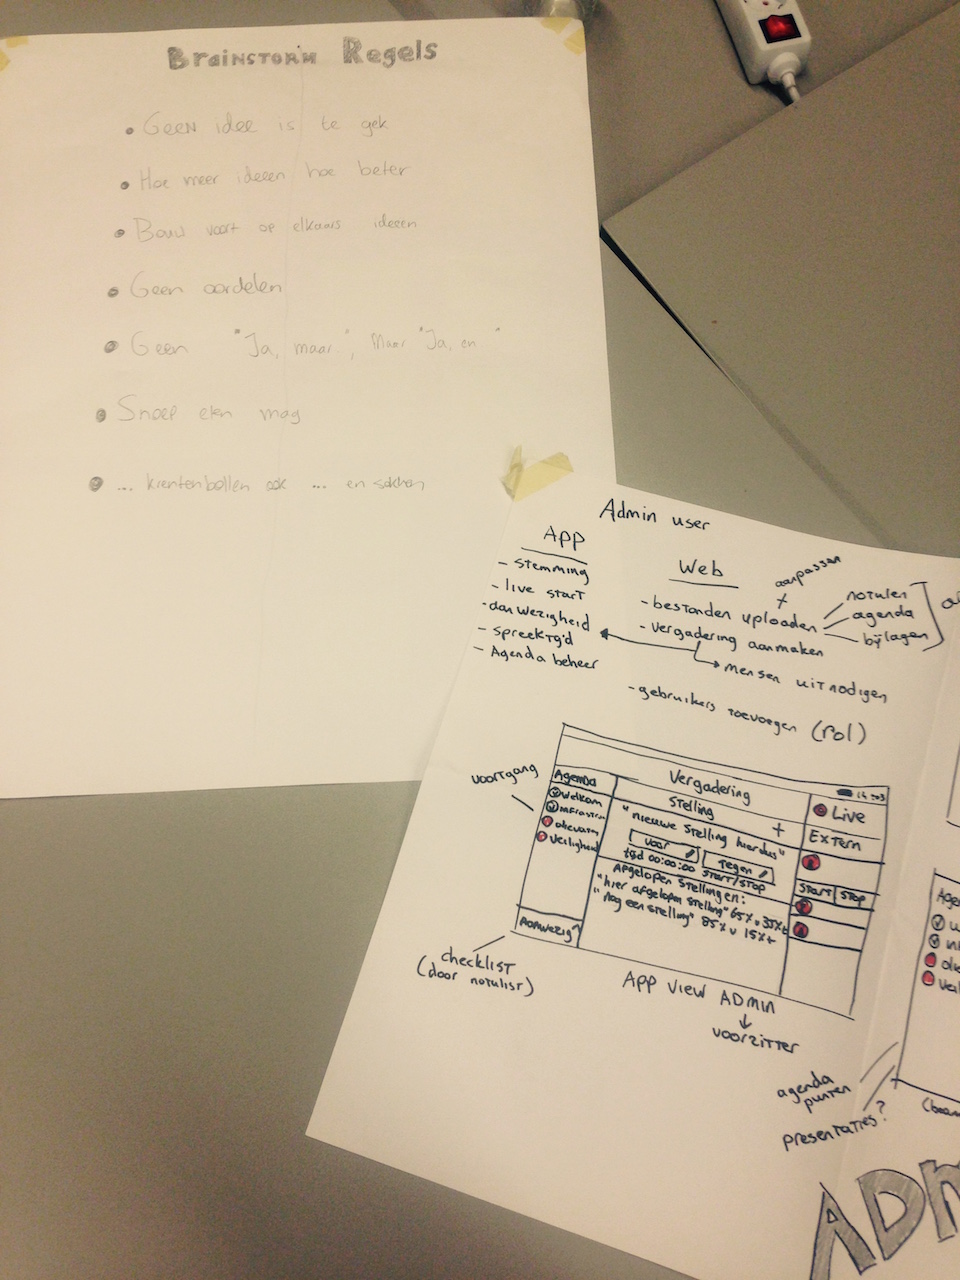 Brainstorm Regels
• Geen idee is te gek
• Hoe meer ideeen hoe beter
• Bouw voort op elkaars ideeen
• Geen oordelen
• Geen "Ja, maar", Maar "Ja, en"
• Snoep eten mag
• ... krentenbollen ook ... en sokken
Admin user
App
- stemming
- live start
- aanwezigheid
- spreektijd
- Agenda beheer
Web
aanpassen
+
- bestanden uploaden
notulen
agenda
bijlagen
- vergadering aanmaken
mensen uitnodigen
- gebruikers toevoegen (rol)
voortgang
Agenda
Welkom
infrastru
Veiligheid
Aanwezig?
Vergadering
Stelling
+
"nieuwe stelling hier dus"
voor
tegen
tijd 00:00:00 start/stop
Afgelopen stellingen:
"hier afgelopen stelling" 65% v 35% t
"nog een stelling" 85% v 15% t
Live
Extern
Start Stop
checklist
(door notulist)
App view Admin
voorzitter
Agen
agenda
punten
presentaties?
ADM